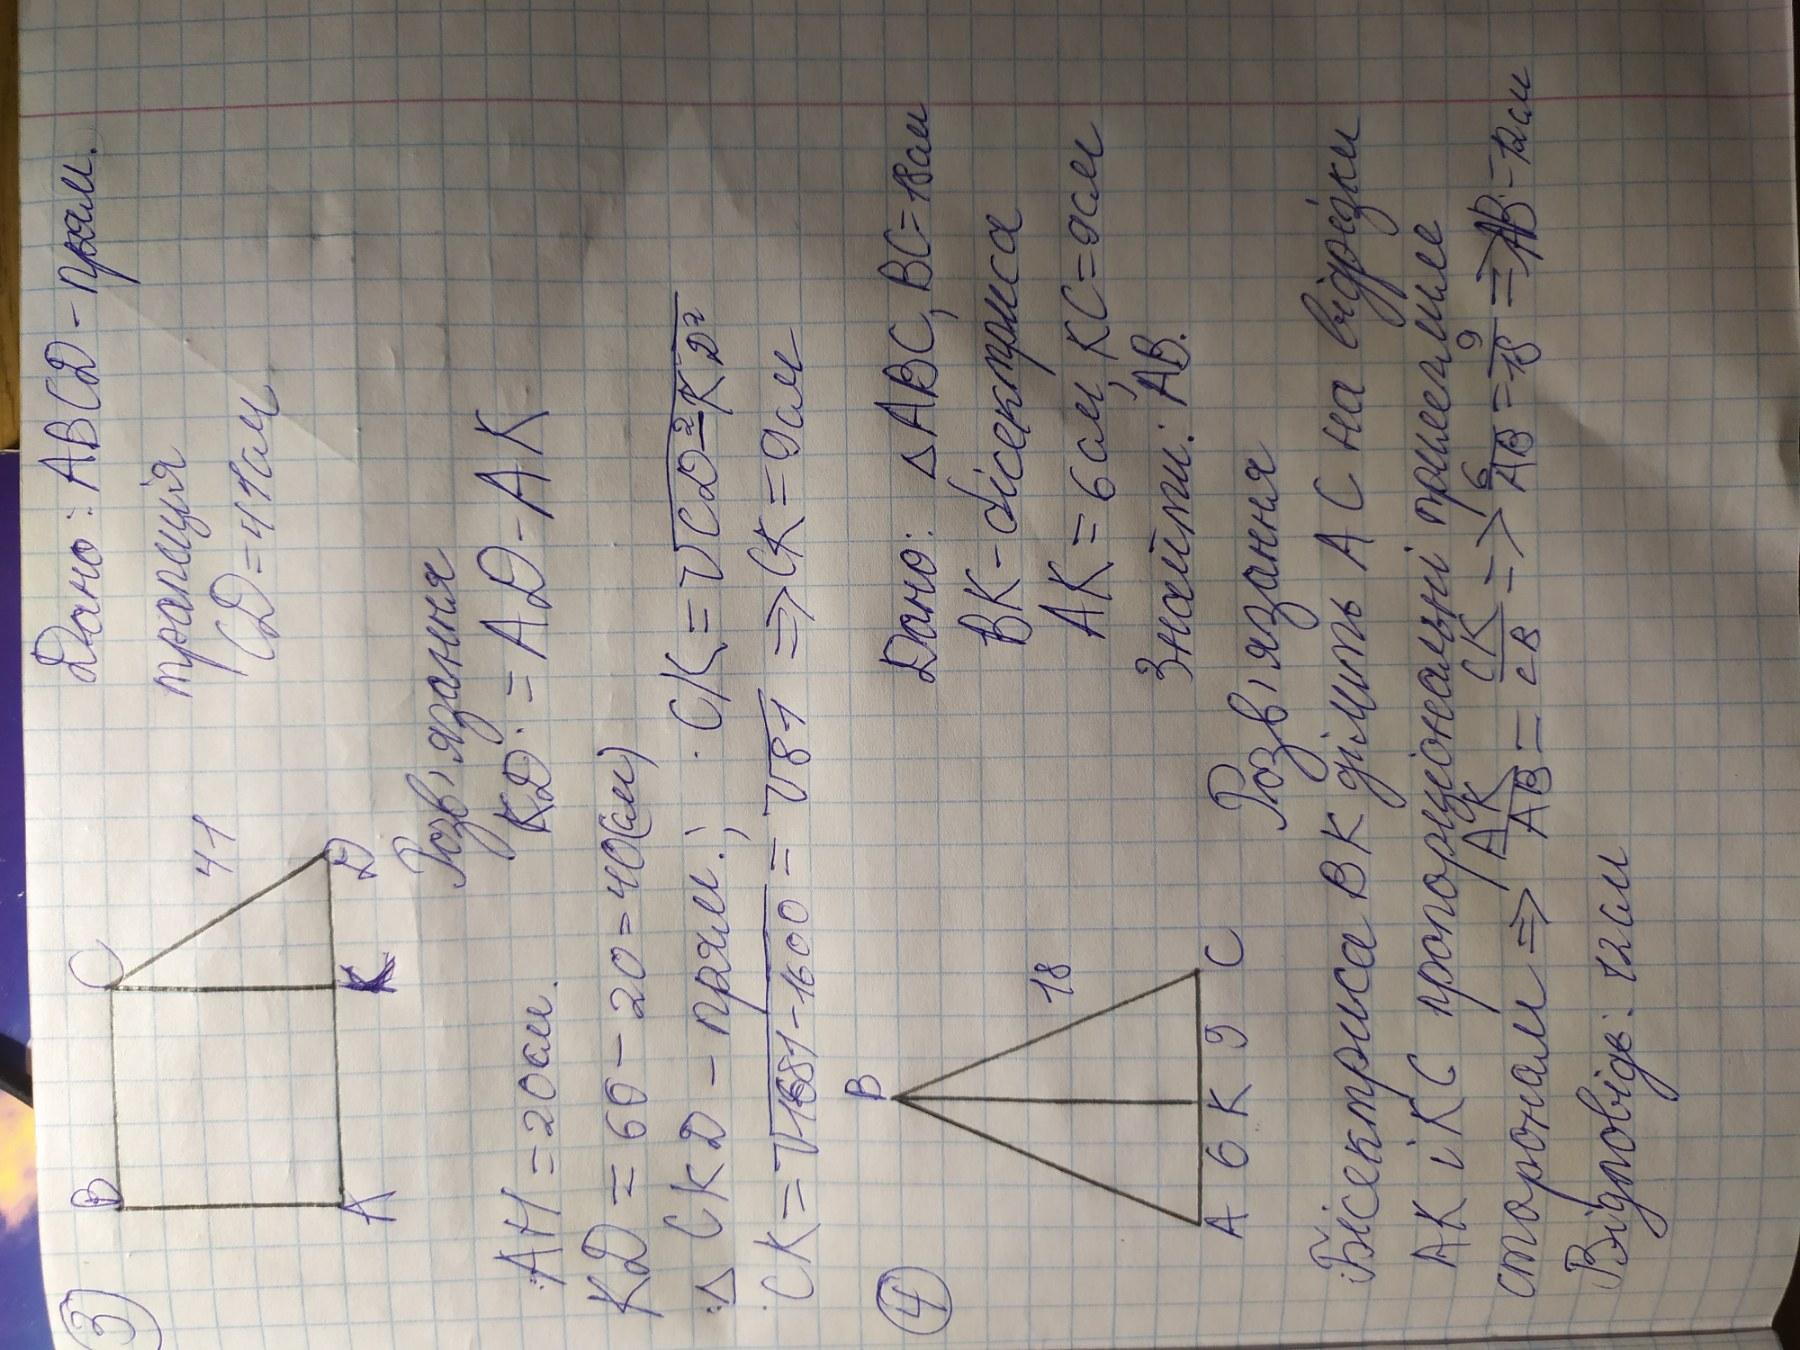 ③
B C
41
A K D
Дано: ABCD – прям.
трапеція
CD = 41см
Розв'язання
AH = 20см. KD = AD – AK
KD = 60 – 20 = 40(см)
△ CKD – прям.; CK = √CD² – KD²
CK = √1681 – 1600 = √81 ⇒ CK = 9см
④
B
18
A 6 K 9 C
Дано: △ABC, BC = 18см
BK – бісектриса
AK = 6см, KC = 9см
Знайти: AB.
Розв'язання
Бісектриса BK ділить AC на відрізки
AK і KC пропорціональні прилеглим
сторонам ⇒ AK/AB = CK/CB => 6/AB = 9/18 => AB = 12см
Відповідь: 12см